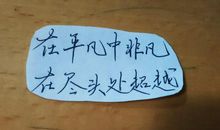 在平凡中非凡
在尽头处超越